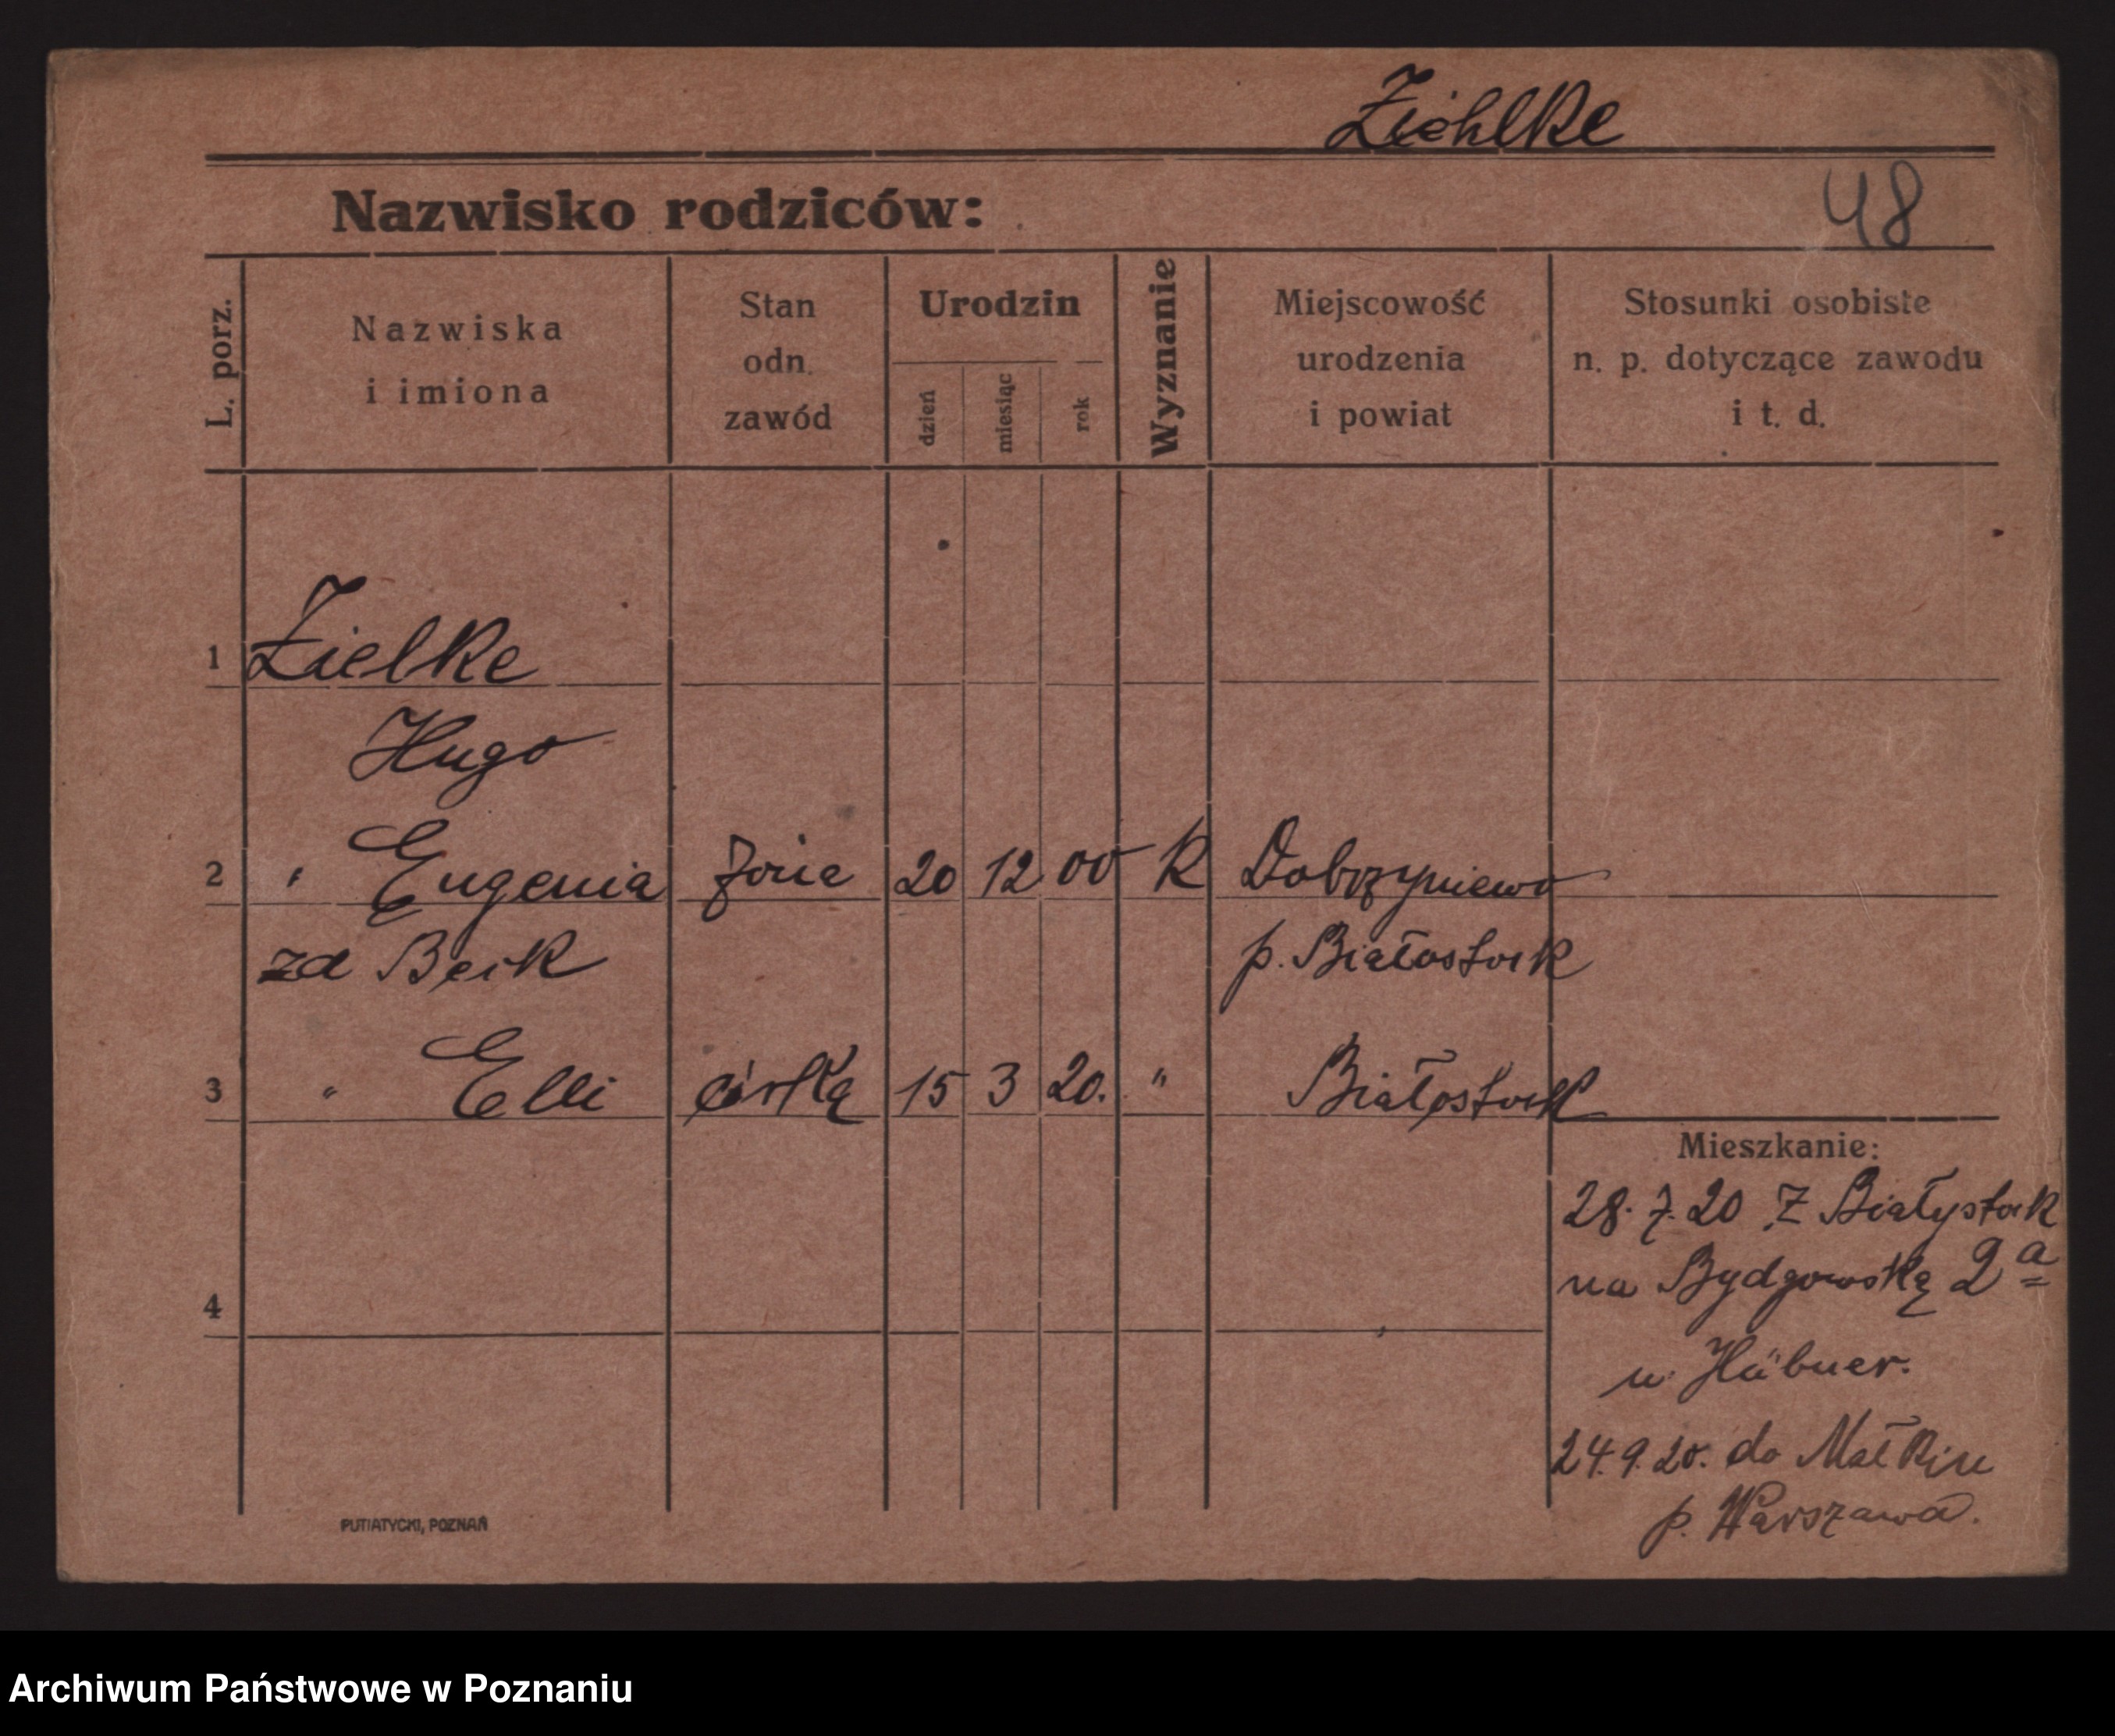 Ziehlke
Nazwisko rodziców:
48
L. porz.
Nazwiska
i imiona
Stan
odn.
zawód
Urodzin
dzień
miesiąc
rok
Wyznanie
Miejscowość
urodzenia
i powiat
Stosunki osobiste
n. p. dotyczące zawodu
i t. d.
1 Zielke
Hugo
2 " Eugenia żona 20 12 00 K Dobrzyniewo
zd Beik p. Białostock
3 " Elli córka 15 3 20. " Białostock
Mieszkanie:
28. 7. 20 Z Białystock
na Bydgowską 2a
u Hübner.
4
24. 9. 20. do Małkin
p. Warszawa.
PUTIATYCKI, POZNAŃ
Archiwum Państwowe w Poznaniu